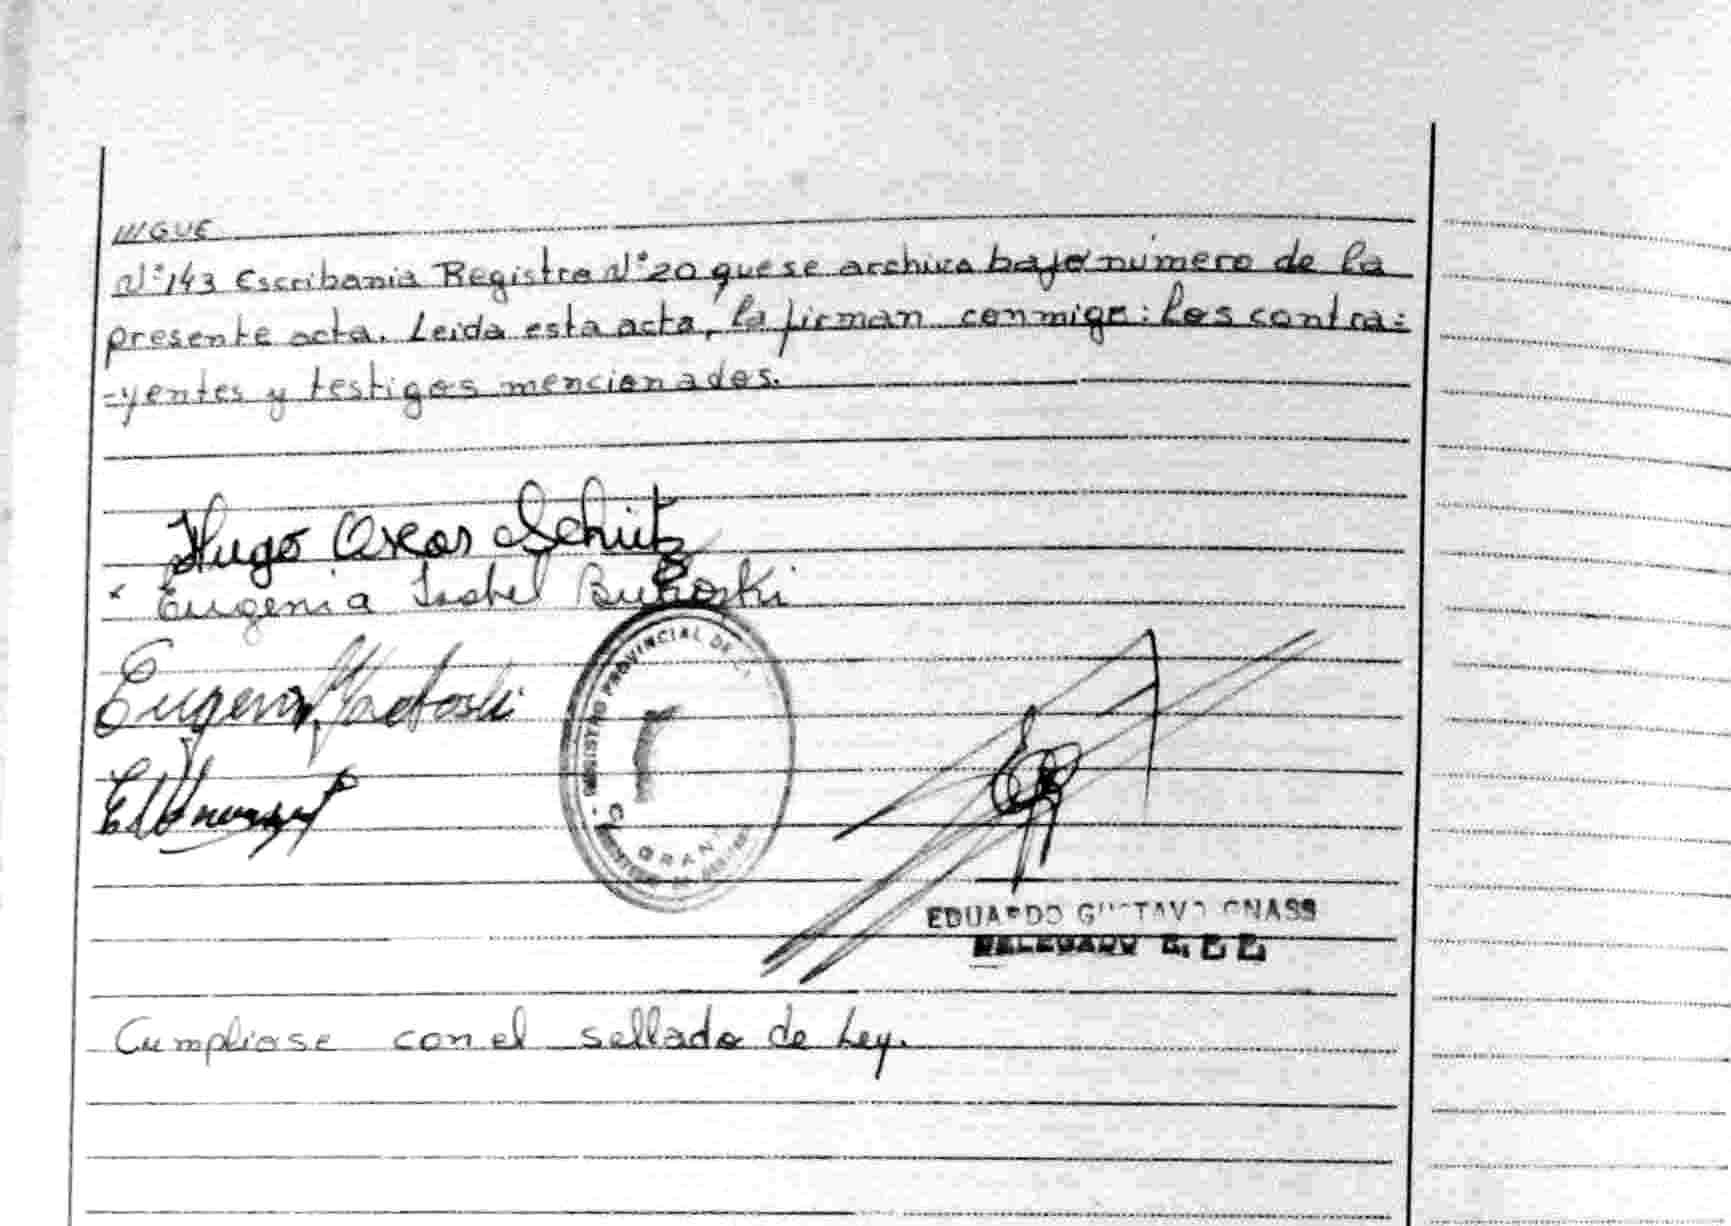 ///GUE
N°143 Escribania Registro N°20 que se archiva bajo número de la
presente acta. Leida esta acta, la firman conmigo: los contra=
=yentes y testigos mencionados.
Hugo Oscar Schütz
x Eugenia Isabel Bukoski
Eugenia
REGISTRO PROVINCIAL DE
EDUARDO GUSTAVO GNASS
DELEGADO
Cumpliose con el sellado de Ley.